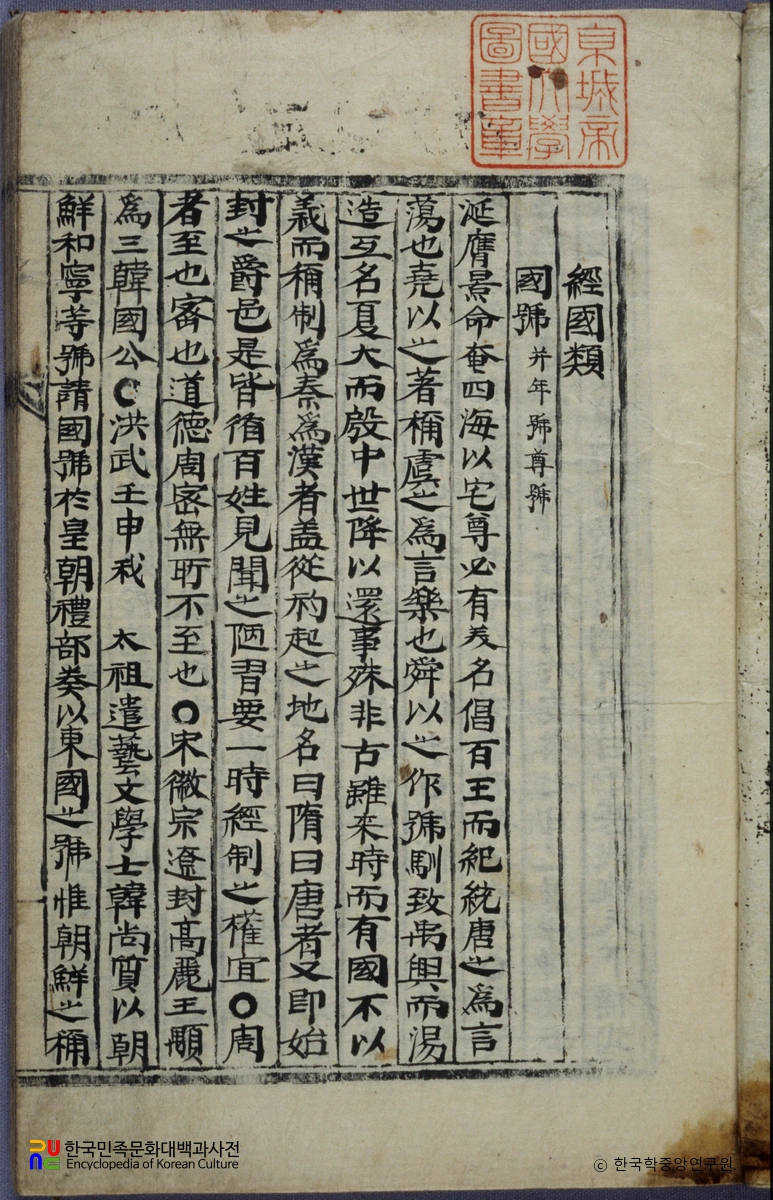 京城帝
國大學
圖書章
經國類
國號 并年號尊號
涎膺景命奄四海以宅尊必有美名倡百王而紀統唐之爲言
蕩也堯以之著稱虞之爲言樂也舜以之作號馴致禹興而湯
造互名夏大而殷中世降以還事殊非古雖来時而有國不以
義而稱制爲秦爲漢者盖從初起之地名曰隋曰唐者又即始
封之爵邑是皆循百姓見聞之陋習要一時經制之權宜○周
者至也密也道德周密無所不至也○宋徽宗遼封高麗王顒
爲三韓國公○洪武壬申我 太祖遣藝文學士韓尚質以朝
鮮和寧等號請國號於皇朝禮部奏以東國之號惟朝鮮之稱
한국민족문화대백과사전
Encyclopedia of Korean Culture
© 한국학중앙연구원